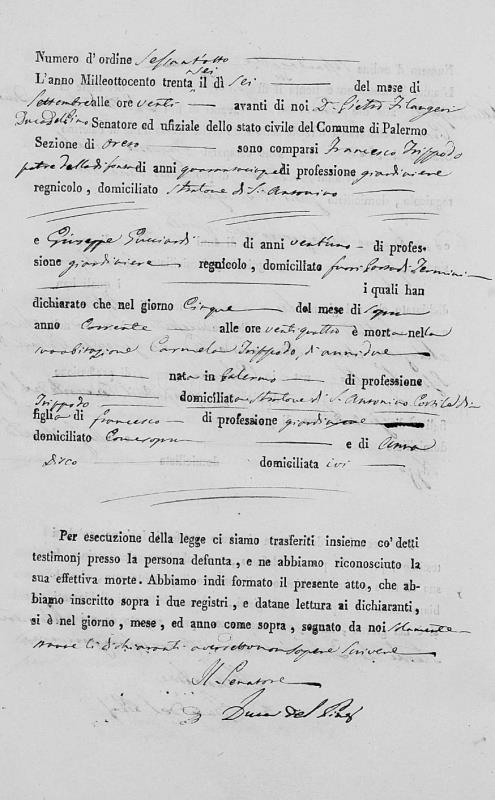 Numero d'ordine Sessantotto
L'anno Milleottocento trenta sei il dì Sei del mese di
Settembre alle ore venti avanti di noi D. Pietro Filangeri
Duca del Pino Senatore ed ufiziale dello stato civile del Comune di Palermo
Sezione di Oreto sono comparsi Francesco Trippodo
padre della difonta di anni quarantacinque di professione giardiniere
regnicolo, domiciliato Stratone di S. Antonino
e Giuseppe Guccjardi di anni ventuno di profes-
sione giardiniere regnicolo, domiciliato fuori Porta di Termini
i quali han
dichiarato che nel giorno Cinque del mese di
anno Corrente alle ore ventiquattro è morta nella
sua abitazione Carmela Trippodo, di anni due
nata in Palermo di professione
domiciliata Stratone di S. Antonino Cortile di
Trippodo
figlia di Francesco di professione giardiniere
domiciliato Come sopra e di Anna
Disco domiciliata ivi
Per esecuzione della legge ci siamo trasferiti insieme co' detti
testimonj presso la persona defunta, e ne abbiamo riconosciuto la
sua effettiva morte. Abbiamo indi formato il presente atto, che ab-
biamo inscritto sopra i due registri, e datane lettura ai dichiaranti,
si è nel giorno, mese, ed anno come sopra, segnato da noi solamente
li dichiaranti aver detto non sapere scrivere
Il Senatore
Duca del Pino